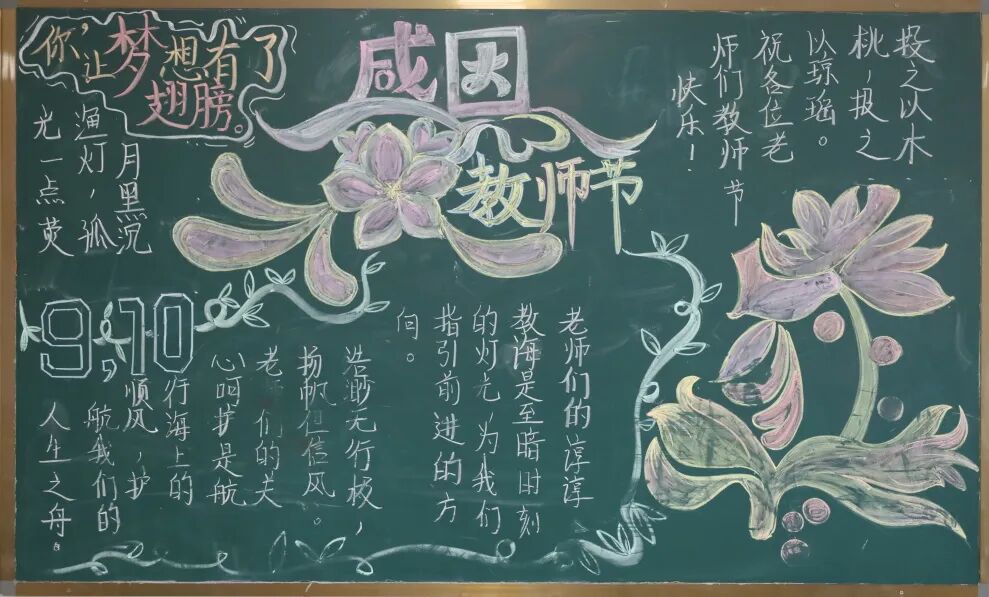 你,让梦想有了
翅膀。
感恩
教师节
投之以木
桃,报之
以琼瑶。
祝各位老
师们教师节
快乐!
月黑沉
渔灯,孤
光一点荧
9,10
老师们的谆谆
教海是至暗时刻
的灯光,为我们
指引前进的方
向。
浩渺无行极,
扬帆但信风。
老师们的关
心呵护是航
行海上的
顺风,护
航我们的
人生之舟。